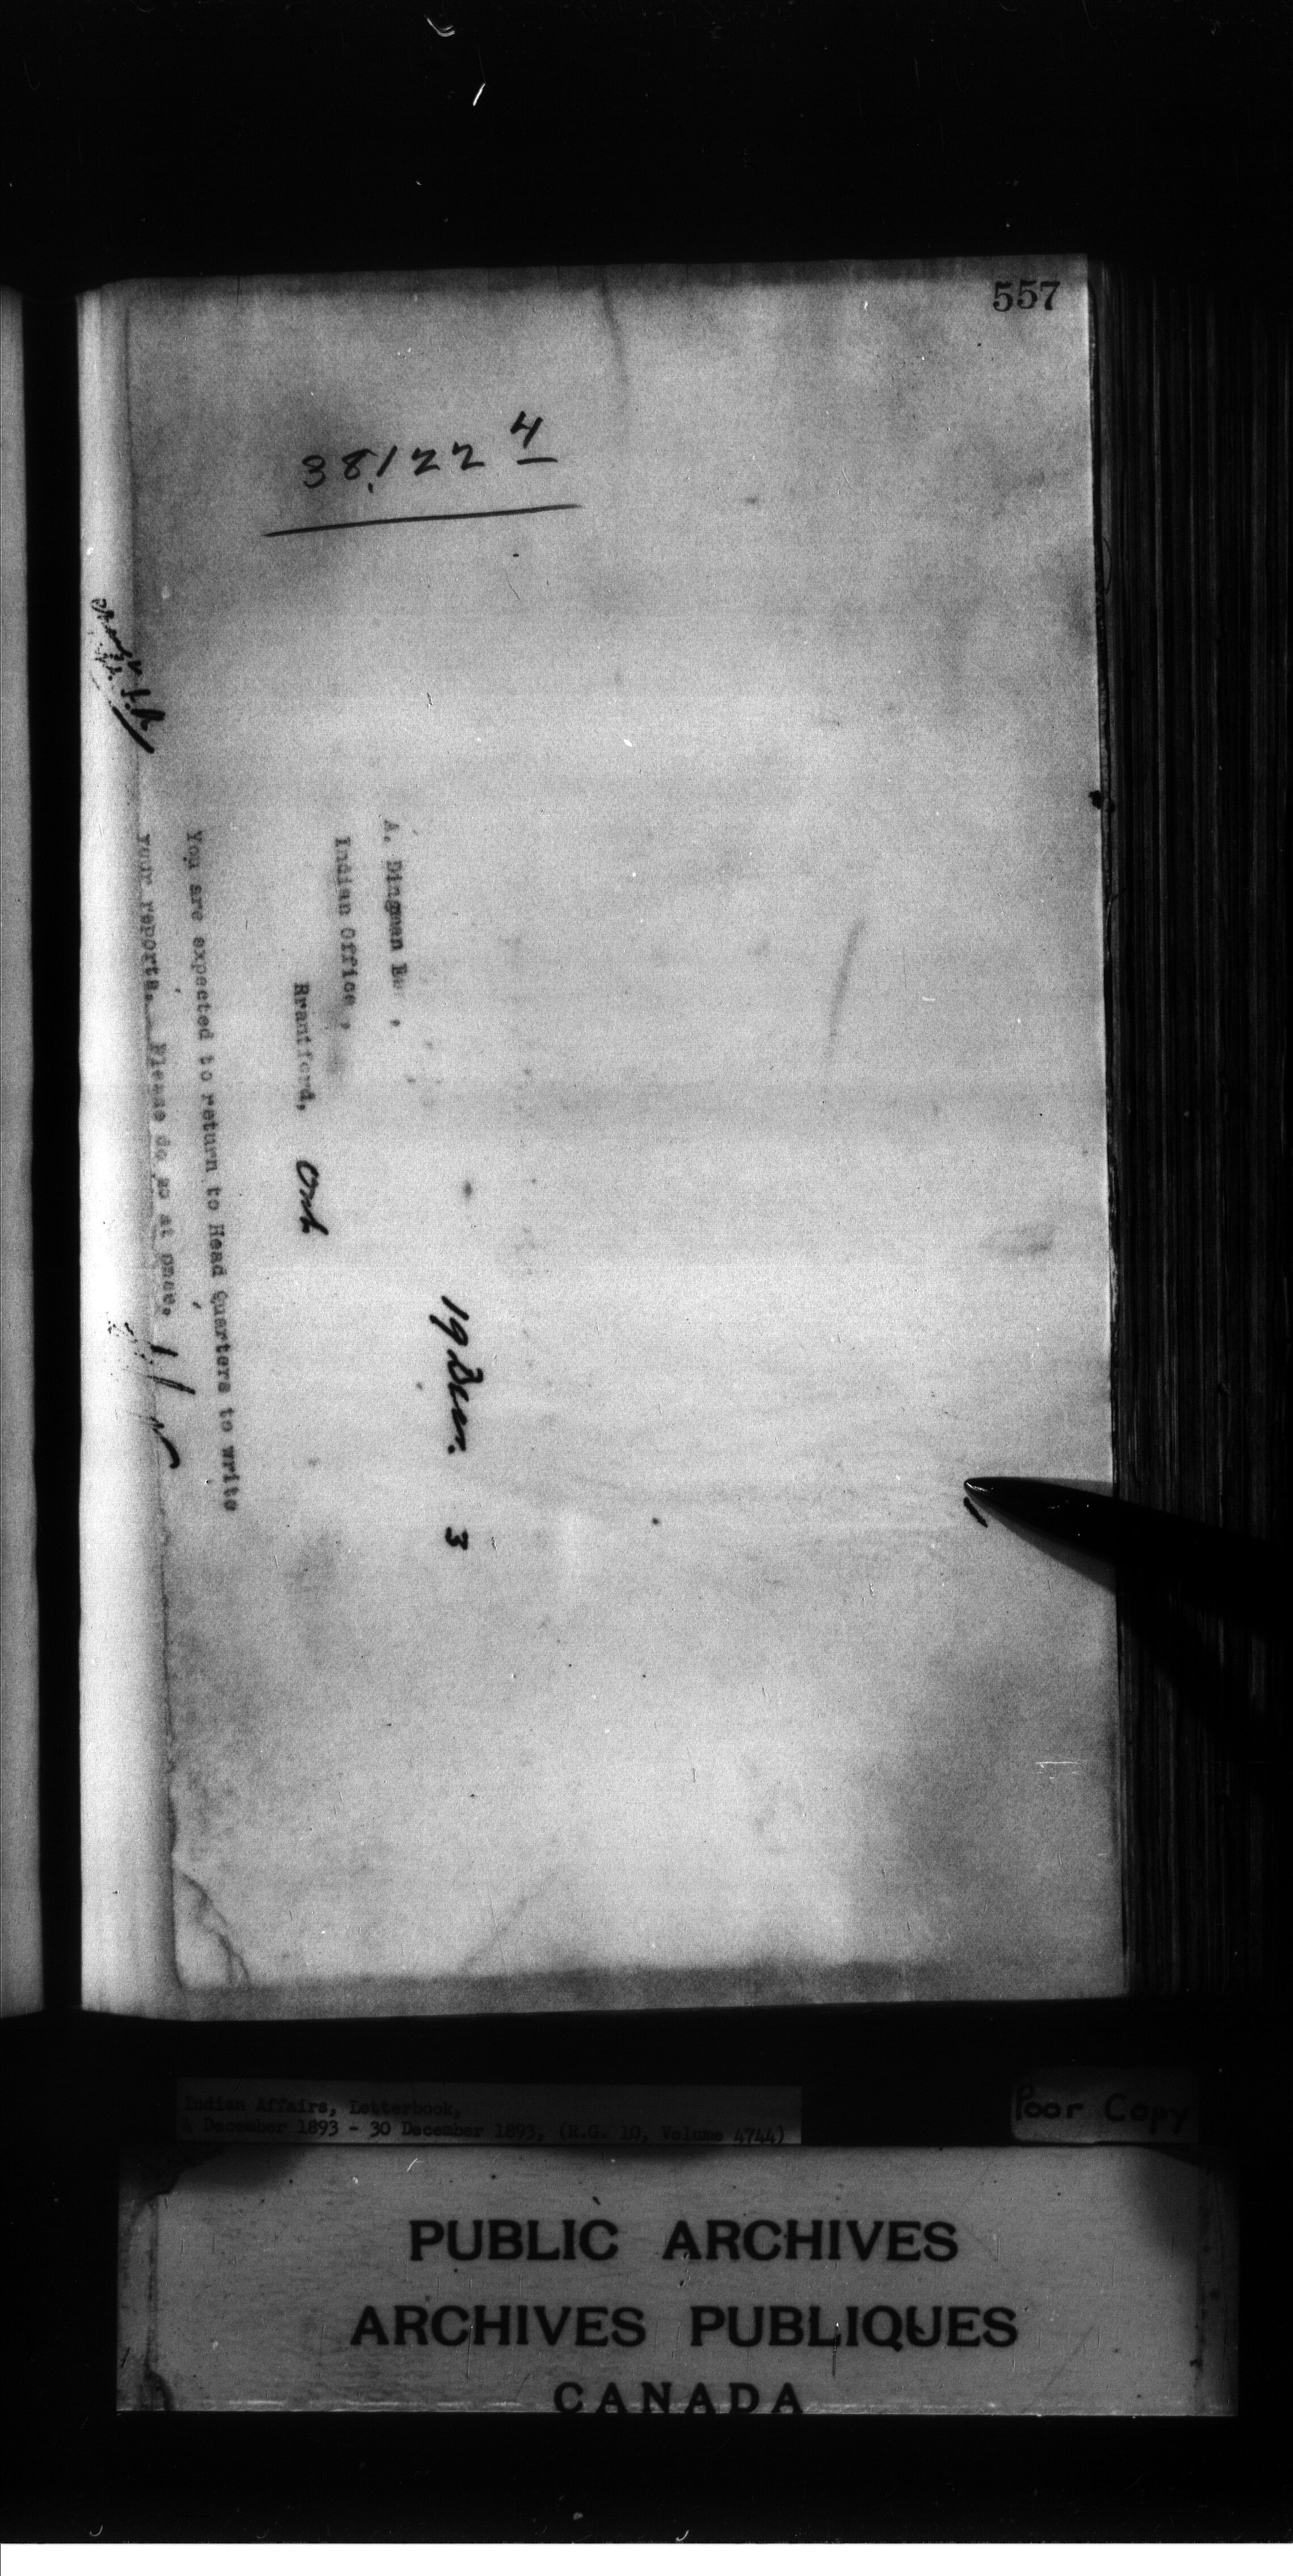 557
38,122 4
19 Decr. 3
A. Dingman
Indian Office,
Brantford, Ont
You are expected to return to Head Quarters to write
your reports. Please do so at once.
Indian Affairs, Letterbook,
4 December 1893 - 30 December 1893, (R.G. 10, Volume 4744)
Poor Copy
PUBLIC ARCHIVES
ARCHIVES PUBLIQUES
CANADA